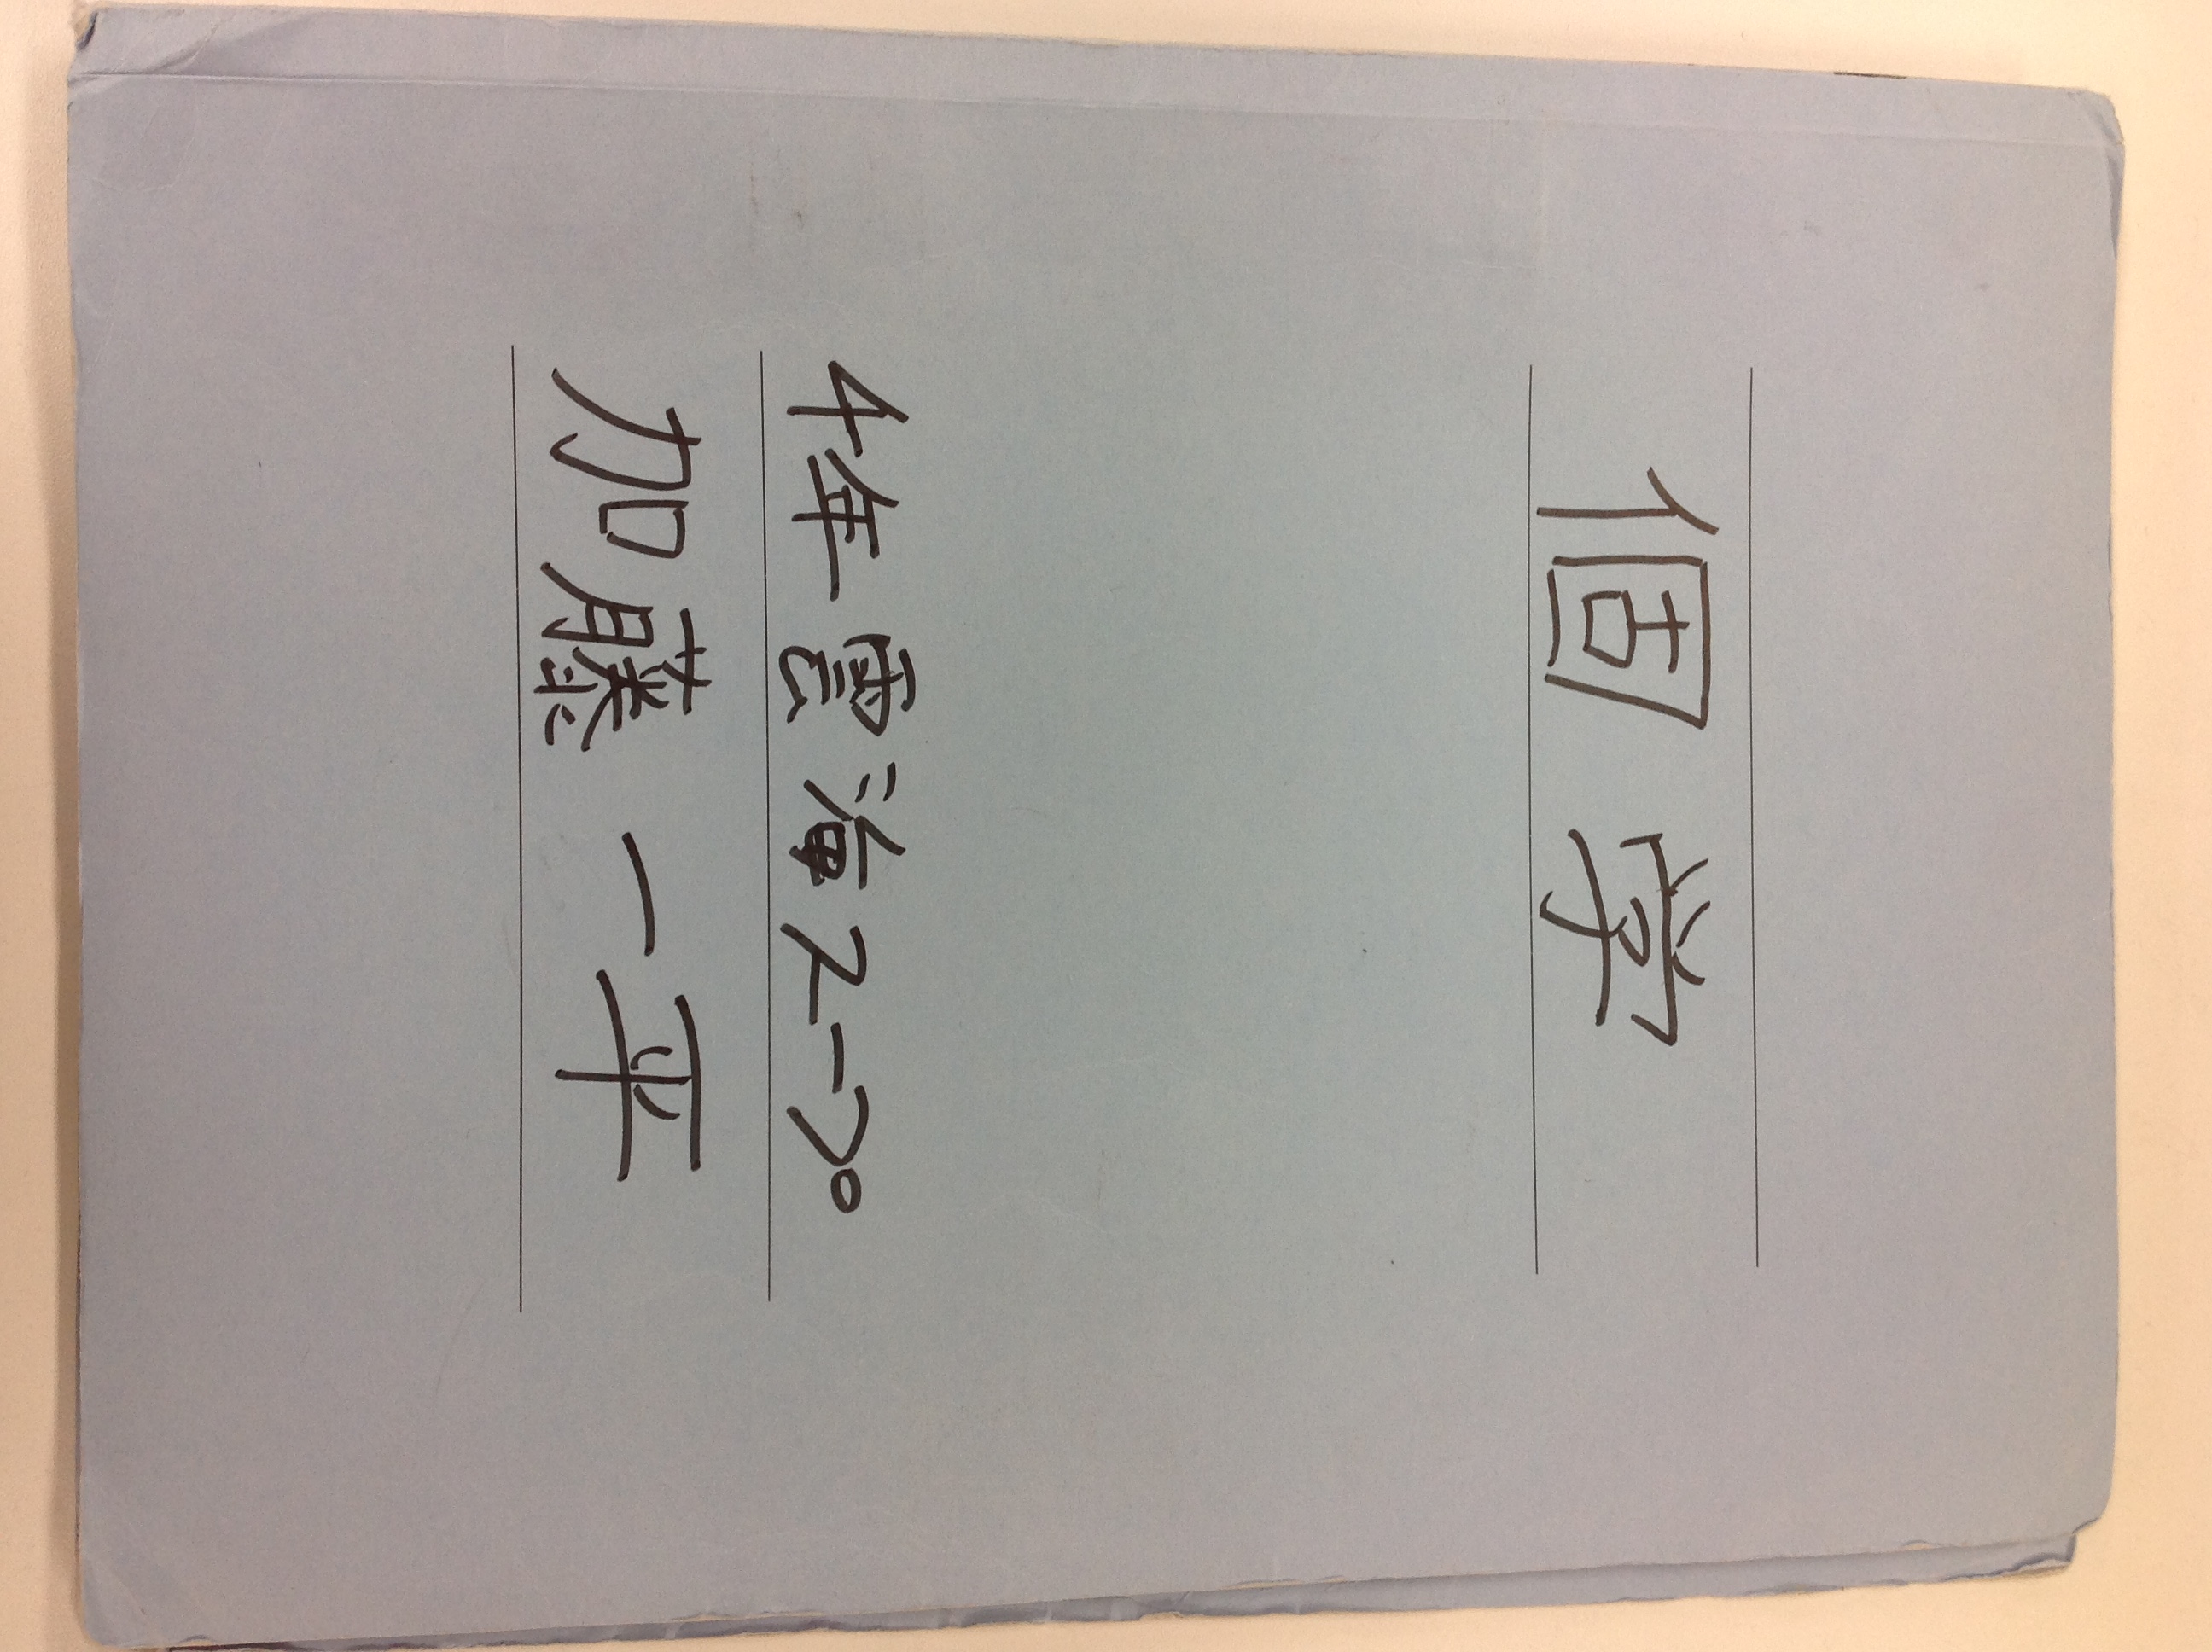 個 学
4年 雲海スープ
加藤 一平